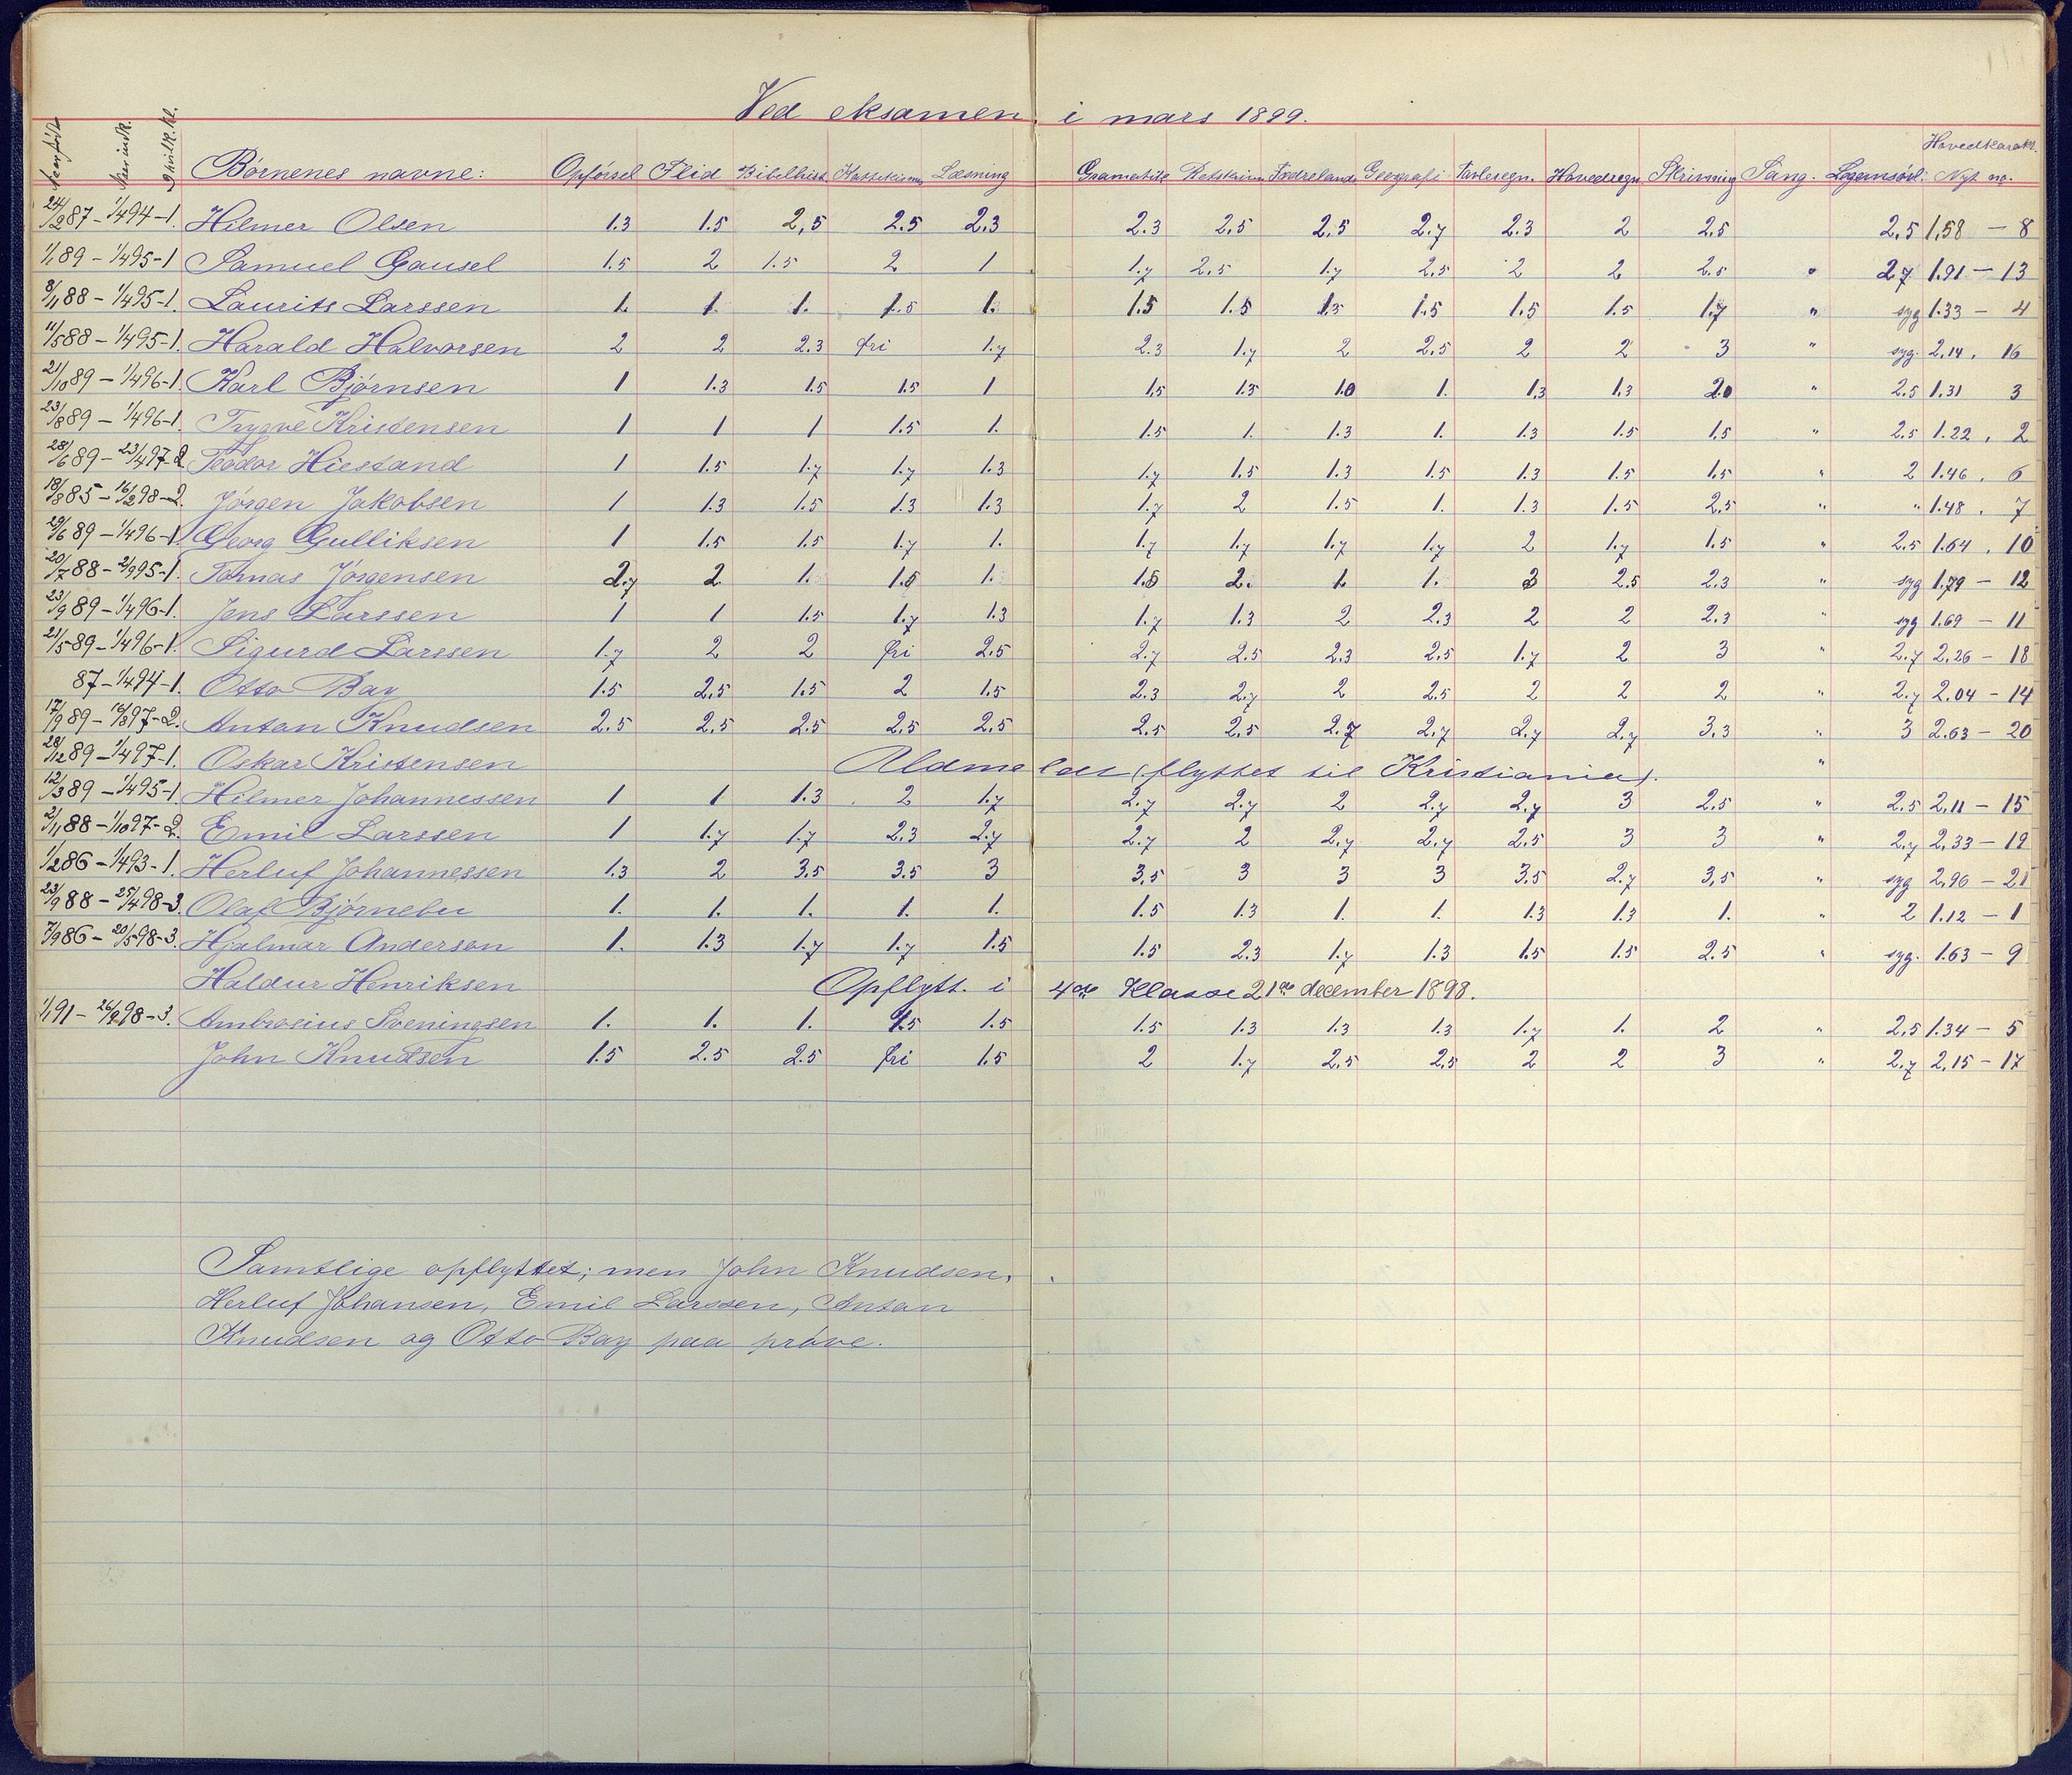 Ved eksamen i mars 1899.
Naar født Naar indk. I hvilk. kl. Børnenes navne: Opførsel Flid Bibelhist. Læsning Gramatik Retskrivn Fædreland Geografi Tavleregn. Hovedregn. Skrivning Sang. Legemsøvl. Hovedkarakt. Nyt no.
24/2 87 - 1/4 94 - 1. Hilmer Olsen 1.3 1.5 2,5 2.5 2.3 2.3 2,5 2,5 2.7 2.3 2 2,5 2,5 1,58 - 8
1/1 89 - 1/4 95 - 1 Samuel Gausel 1.5 2 1.5 2 1 1.7 2,5 1.7 2,5 2 2 2.5 " 2.7 1.91 - 13
8/11 88 - 1/4 95 - 1. Laurits Larssen 1. 1. 1. 1.5 1. 1.5 1.5 1.5 1.5 1.5 1.5 1.7 " syg 1.33 - 4
11/5 88 - 1/4 95 - 1. Harald Halvorsen 2 2 2.3 fri 1.7 2.3 1.7 2 2,5 2 2 3 " syg. 2,14. 16
21/10 89 - 1/4 96 - 1. Karl Bjørnsen 1 1.3 1.5 1.5 1 1,5 1.5 1.0 1. 1,3 1,3 2.0 " 2.5 1.31 3
23/8 89 - 1/4 96 - 1. Trygve Kristensen 1 1 1 1.5 1. 1.5 1. 1.3 1. 1.3 1.5 1,5 " 2.5 1.22. 2
28/6 89 - 23/4 97 - 2 Teodor Hiestand 1 1.5 1.7 1.7 1.3 1.7 1.5 1.3 1.5 1.3 1.5 1.5 " 2 1.46. 6
18/8 85 - 16/2 98 - 2. Jørgen Jakobsen 1 1.3 1.5 1.3 1.3 1.7 2 1.5 1. 1.3 1.5 2,5 " " 1.48. 7
29/6 89 - 1/4 96 - 1. Georg Gulliksen 1 1.5 1.5 1.7 1. 1.7 1.7 1.7 1.7 2 1.7 1.5 " 2.5 1.64. 10
20/7 88 - 2/9 95 - 1. Tomas Jørgensen 2.7 2 1. 1.5 1. 1.5 2. 1. 1. 2 2.5 2.3 " syg 1,79 - 12
23/9 89 - 1/4 96 - 1. Jens Larssen 1 1 1.5 1.7 1.3 1.7 1.3 2 2.3 2 2 2.3 " syg 1.69 - 11
21/5 89 - 1/4 96 - 1. Sigurd Larssen 1.7 2 2 fri 2.5 2.7 2.5 2.3 2.5 1.7 2 3 " 2.7 2,26 - 18
87 - 1/4 94 - 1. Otto Bay 1.5 2,5 1.5 2 1.5 2.3 2.7 2 2.5 2 2 2 " 2.7 2.04 - 14
17/9 89 - 16/8 97 - 2. Anton Knudsen 2.5 2,5 2.5 2,5 2,5 2.5 2,5 2.7 2.7 2.7 2.7 3.3 " 3 2.63 - 20
28/12 89 - 1/4 97 - 1. Oskar Kristensen Udmeldt (flyttet til Kristiania). "
12/3 89 - 1/4 95 - 1 Hilmer Johannessen 1 1 1.3 2 1.7 2.7 2.7 2 2.7 2.7 3 2,5 " 2.5 2,11 - 15
2/11 88 - 1/10 97 - 2. Emil Larssen 1 1.7 1.7 2.3 2.7 2.7 2 2.7 2.7 2.5 3 3 " 2.7 2,33 - 19
1/2 86 - 1/4 93 - 1. Herluf Johannessen 1.3 2 3.5 3.5 3 3,5 3 3 3 3.5 2.7 3,5 " syg 2.96 - 21
23/9 88 - 25/4 98 - 3. Olaf Bjørnebu 1. 1. 1. 1. 1. 1.5 1.3 1. 1. 1.3 1.3 1. " 2 1.12 - 1
7/9 86 - 20/5 98 - 3. Hjalmar Anderson 1. 1.3 1.7 1.7 1.5 1.5 2.3 1.7 1.3 1.5 1.5 2.5 " syg. 1.63 - 9
Haldur Henriksen Opflytt. i 4de Klasse 21de december 1898.
1/1 91 - 26/9 98 - 3. Ambrosius Sveningsen 1. 1. 1. 1.5 1.5 1.5 1.3 1.3 1.3 1.7 1. 2 " 2,5 1.34 - 5
John Knudsen 1.5 2.5 2.5 fri 1.5 2 1.7 2,5 2,5 2 2 3 " 2.7 2,15 - 17
Samtlige opflyttet; men John Knudsen,
Herluf Johansen, Emil Larssen, Anton
Knudsen og Otto Bay paa prøve.